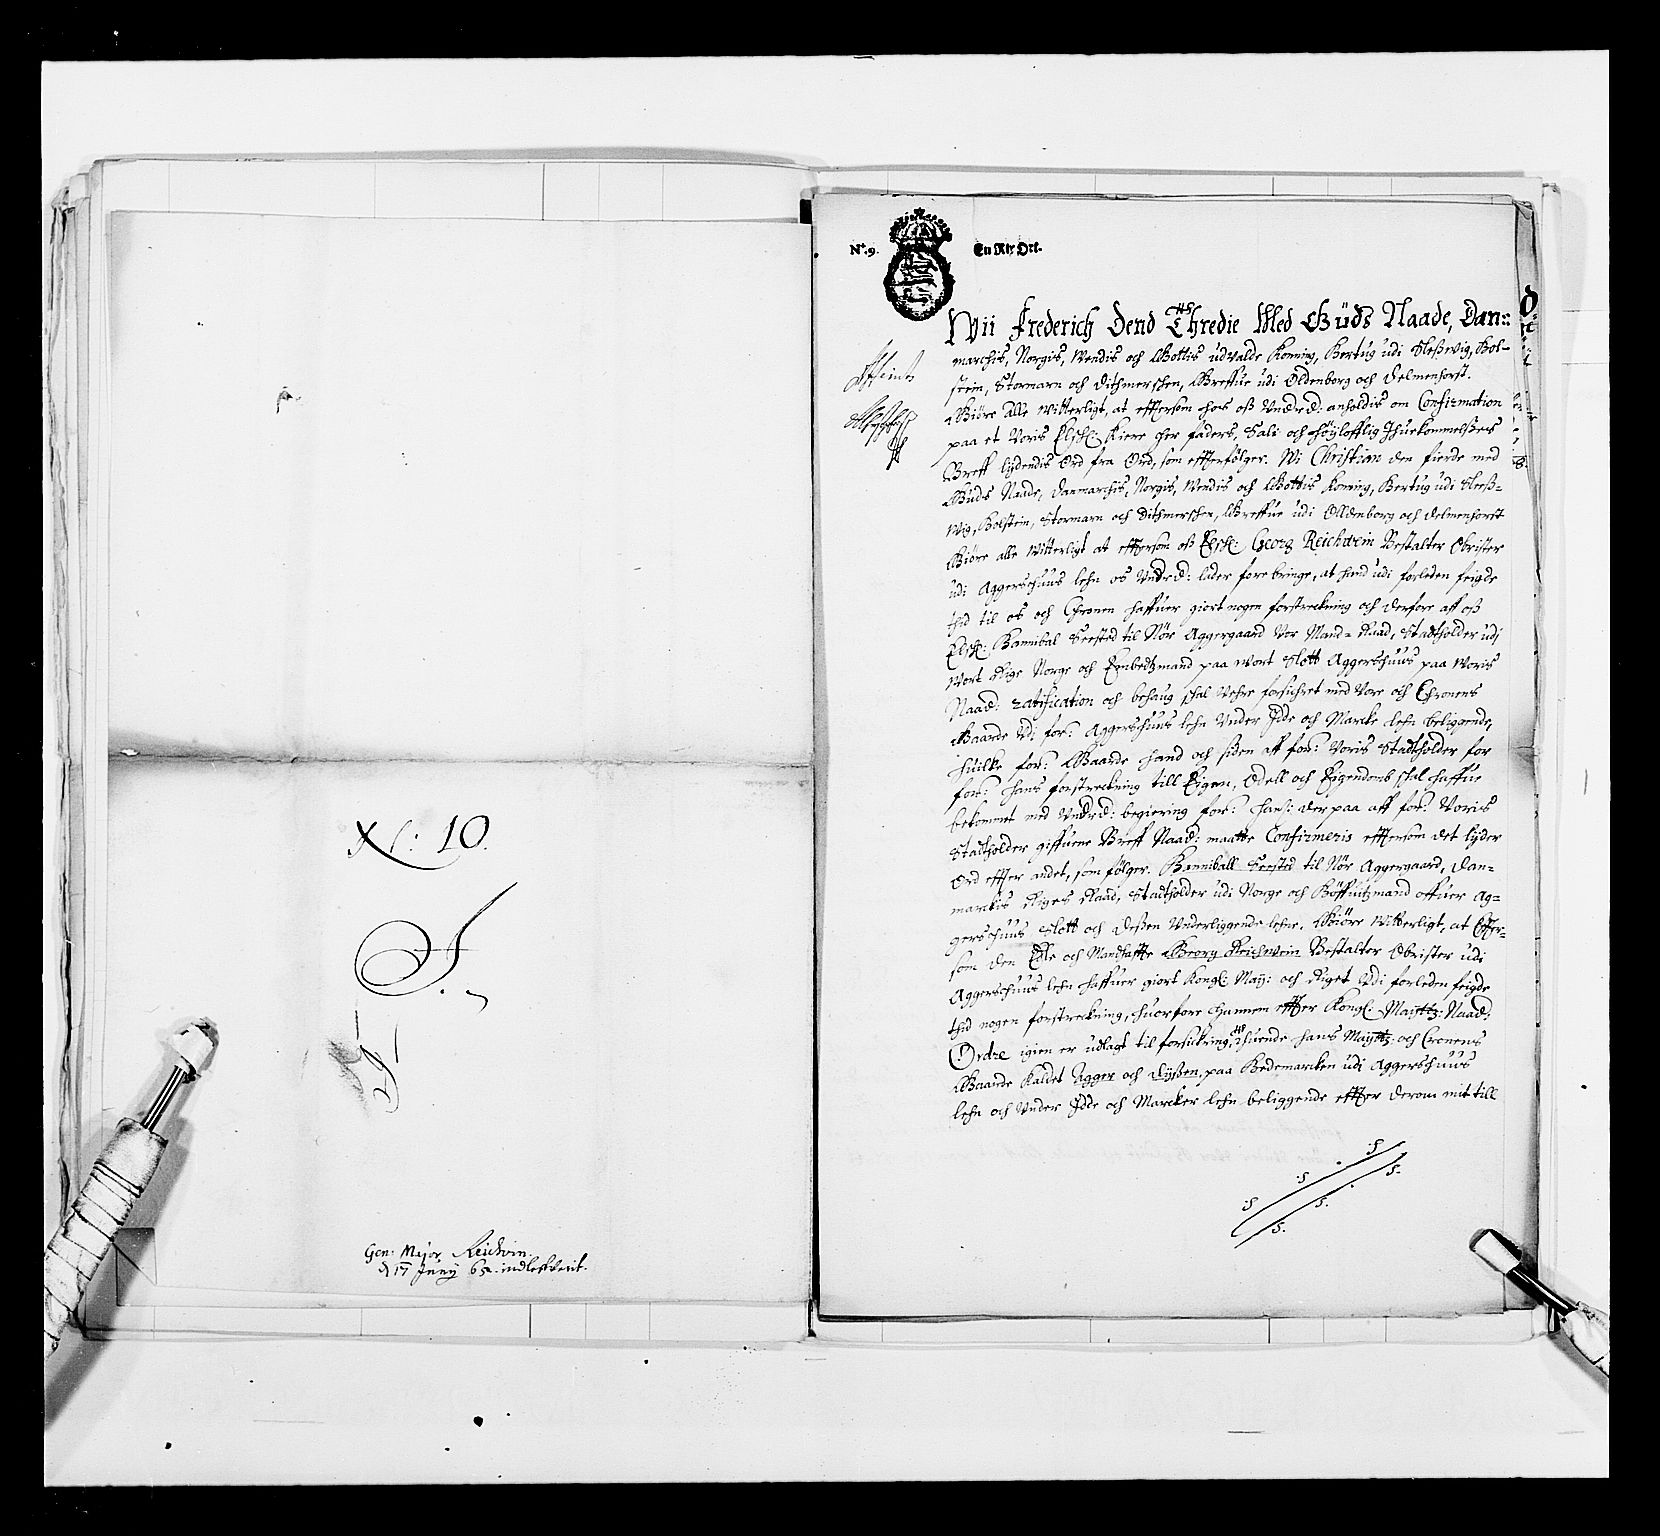 N: 10.
J.
Gen: Major Reichvin.
d 17 Junij 65. indleskverit.
Nº. 9. En Rix Ort.
Wii Frederich Dend Thredie Med Guds Naade, Dan=
marchis, Norgis, Wendis och Gottis udvalde Koning, Hertug udi Sleßvig, Hol-
stein, Stormarn och Dithmerschen, Greffue udi Oldenborg och Delmenhorst.
Giøre Alle Witterligt, at effterson hos oß Underd: anholdis om Confirmation
paa et Voris Elsk: Kiere Her Faders, Sali och Høylofflig Ihuekommelßes
Breff lydendis Ord fra Ord, som effterfølger. Wi Christian den fierde med
Guds Naade, Danmarchis, Norgis, Wendis och Gottis Koning, Hertug udi Sleß-
wig, Holstein, Stormarn och Dithmerschen, Greffue udi Olldenborg och Delmenhorst
Giøre alle Witterligt at effterson oß Elsk: Georg Reichwein Bestalter Obrister
udi Aggerschuus lehn os Underd: lader forebringe, at hand udi forleden feigde
thid til os och Chronen haffuer giort nogen forstreckning och derfore aff oß
Elsk: Hannibal Seested til Nør Aggergaard Vor Mand, Raad, Stadtholder udj
Wort Rige Norge och Embedtzmand paa Wort Slott Aggerschuus paa Woris
Naad: ratification och behaug skal Vehre forsichret med Vore och Chronens
Gaarde Udi for: Aggerschuus lehn Under Idde och Marcke lehn beliggende,
huilke for: Gaarde hand och siden aff for: Voris Stadtholder for
for: hans forstreckning till Eigen, Odell och Eigendomb skal haffue
bekommet med Underd: begiering for: hans derpaa aff for: Voris
Stadtholder giffuene Breff Naad: maatte Confirmeris effterson det lyder
Ord effter andet, som følger. Hanniball Seested til Nør Aggergaard, Dan-
marckis Riges Raad, Stadtholder udi Norge och Høffuitzmand offuer Ag-
gerschuus Slott och deßen Underliggende lehne, Giøre Witterligt, at Effter-
som den Edle och Mandhaffte Georg Reichwein Bestalter Obrister udi
Aggerschuus lehn haffuer giort Kongl: May: och Riget Udi forleden feigde
thid nogen forstreckning, huorfore hannem effter Kongl: Mayttz: Naad:
Ordre igien er udlagt til forsickring, tuende hans Mayttz och Cronens
Gaarde Kaldet Agger och Dyßen, paa Hedemarcken udi Aggerschuus
lehn och Under Idde och Marcker lehn beliggende effter derom mit till